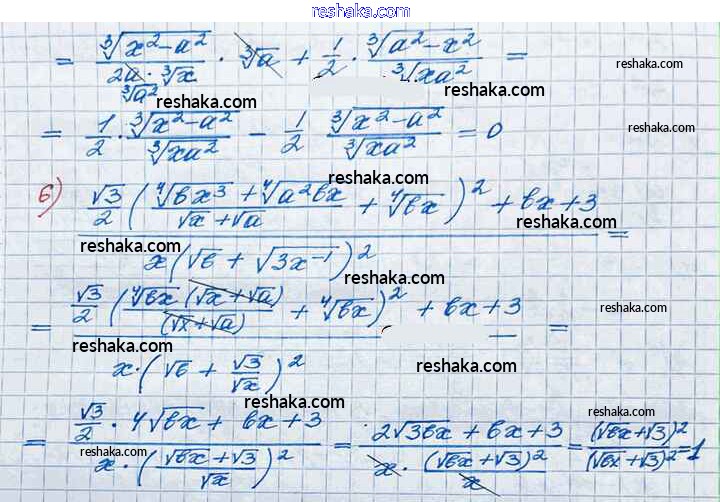 reshaka.com
= ∛(x²-a²) / (2a · ∛x) · ∛a + 1/2 · ∛(a²-x²) / ∛(xa²) =
∛a²
reshaka.com reshaka.com reshaka.com
= 1/2 · ∛(x²-a²) / ∛(xa²) - 1/2 ∛(x²-a²) / ∛(xa²) = 0
reshaka.com
reshaka.com reshaka.com
б) (√3/2 ((∜(bx³) + ∜(a²bx)) / (√x + √a) + ∜(bx))² + bx + 3) / (x(√b + √(3x⁻¹))²) =
reshaka.com
reshaka.com reshaka.com
reshaka.com
= (√3/2 (∜(bx) (√x + √a) / (√x + √a) + ∜(bx))² + bx + 3) / (x · (√b + √3/√x)²) =
reshaka.com
reshaka.com reshaka.com
reshaka.com
= (√3/2 · 4√(bx) + bx + 3) / (x · ((√(bx) + √3) / √x)²) = (2√(3bx) + bx + 3) / (x · (√(bx) + √3)² / x) = (√(bx) + √3)² / (√(bx) + √3)² = 1
reshaka.com reshaka.com reshaka.com